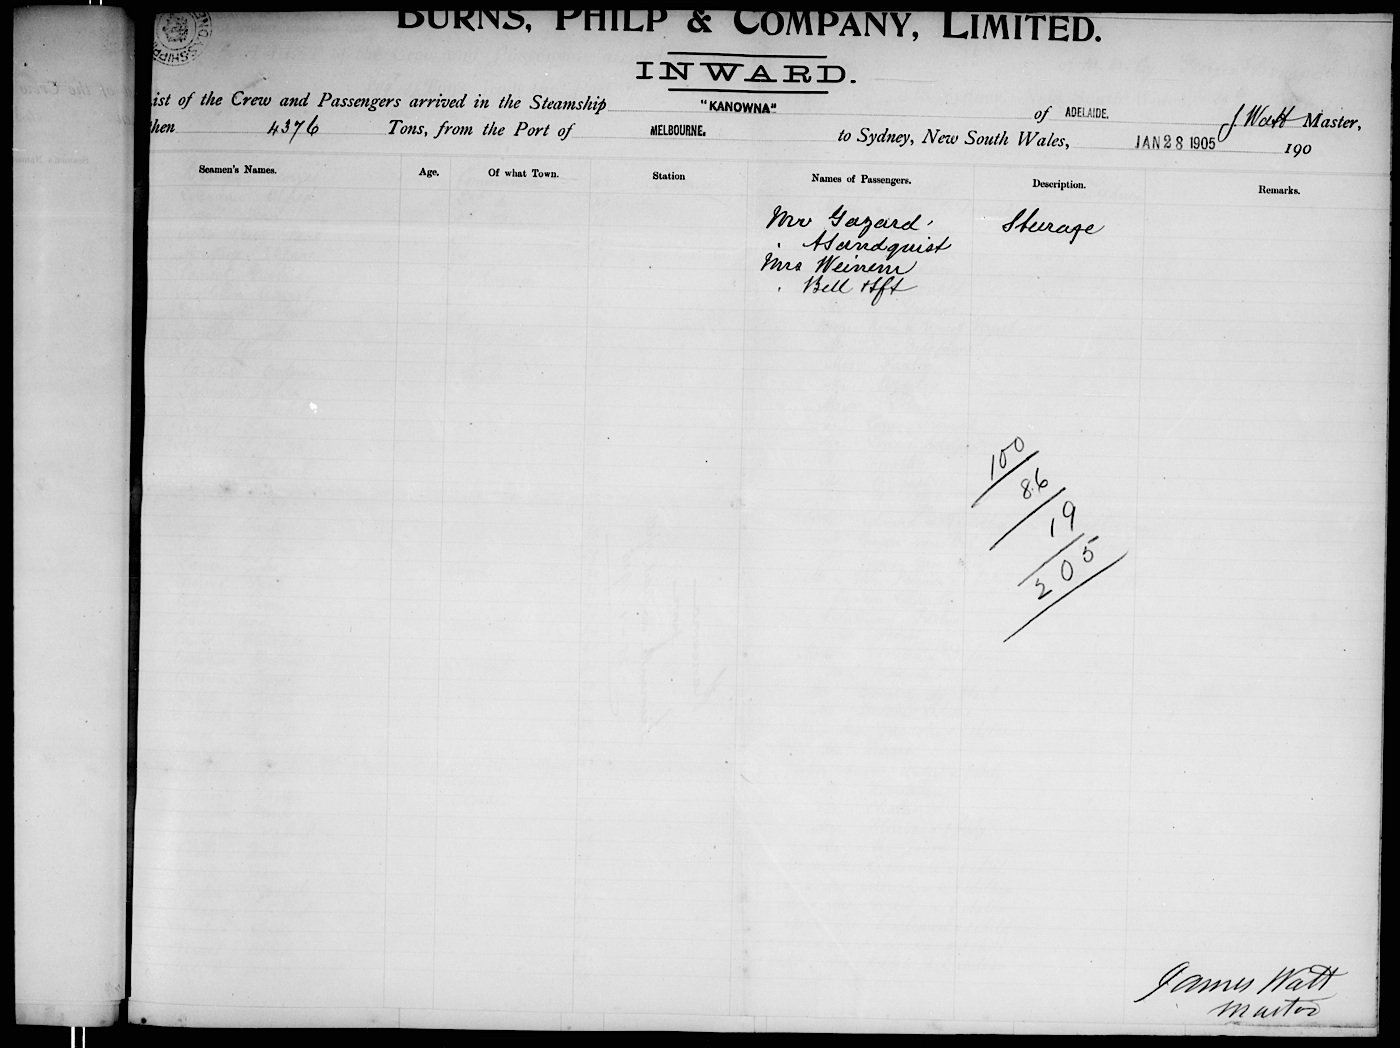 BURNS, PHILP & COMPANY, LIMITED.
INWARD.
ist of the Crew and Passengers arrived in the Steamship "KANOWNA" of ADELAIDE. J Watt Master,
then 4376 Tons, from the Port of MELBOURNE. to Sydney, New South Wales, JAN 28 1905 190
Seamen's Names. Age. Of what Town. Station Names of Passengers. Description. Remarks.
Mr Gazard Steerage
" A Sandquist
Mrs Weinem
" Bell & Ift
100
86
19
205
James Watt
Master